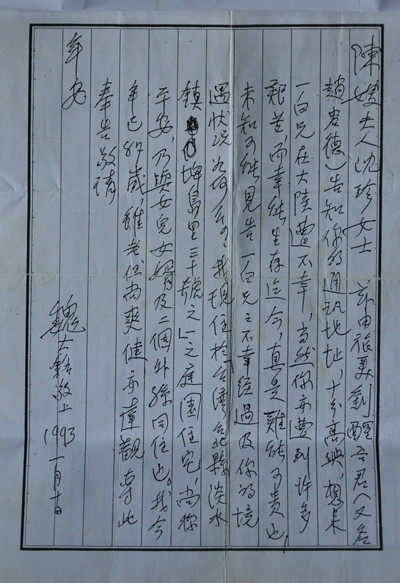 陳嫂夫人沈珍女士 茲由旅美劉醒吾君(又名
趙君德)告知你的通訊地址,十分高興,想來
一白兄在大陸遭不幸,當然你亦要到許多
艱苦,而幸能生存迄今,真是難能可貴也,
未知可能見告一白兄之不幸經過及你的境
遇狀況如何?我現住於台灣台北縣淡水
鎮 埤島里三十號之一之庭園住宅,尚稱
平安,乃與女兒女婿及二個外孫同住也。我今
年已 歲,雖老但尚爽健亦達觀,專此
奉告敬請
年安
魏 敬上 1993 一月十日